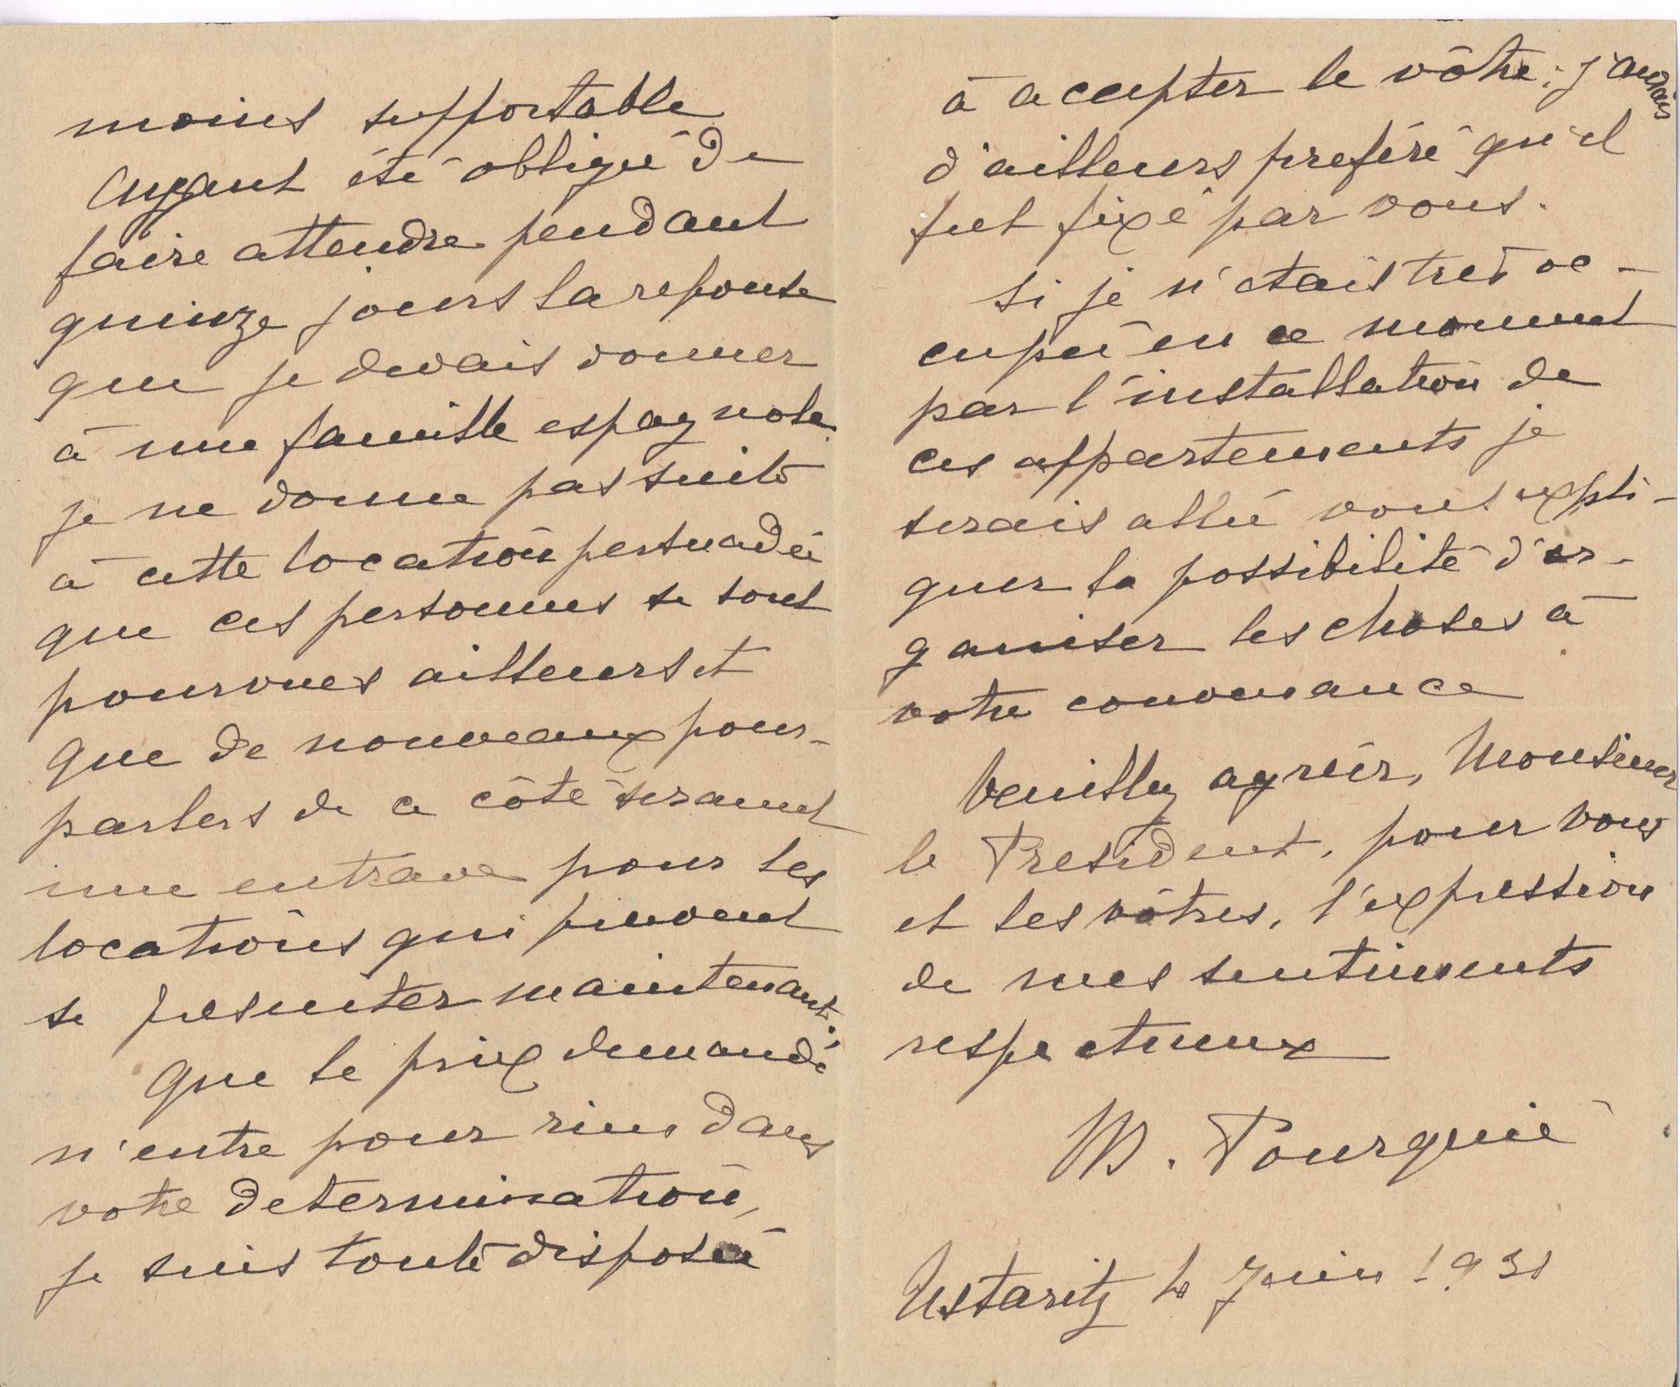 moins supportable
Ayant été obligée de
faire attendre pendant
quinze jours la reponse
que je devais donner
à une famille espagnole
je ne donne pas suite
à cette location persuadée
que ces personnes se sont
pourvues ailleurs et
que de nouveaux pour-
parlers de ce côté seraient
une entrave pour les
locations qui peuvent
se presenter maintenant.
Que le prix demandé
n'entre pour rien dans
votre determination,
je suis toute disposée
à accepter le vôtre; j'aurais
d'ailleurs preféré qu'il
fut fixé par vous.
Si je n'etais tres oc-
cupée en ce moment
par l'installation de
ces appartements je
serais allée vous expli-
quer la possibilité d'or-
ganiser les choses à
votre convenance
Veuillez agréer, Monsieur
le President, pour vous
et les vôtres, l'expression
de mes sentiments
respectueux
M. Pourquié
Ustaritz le Juin 1931